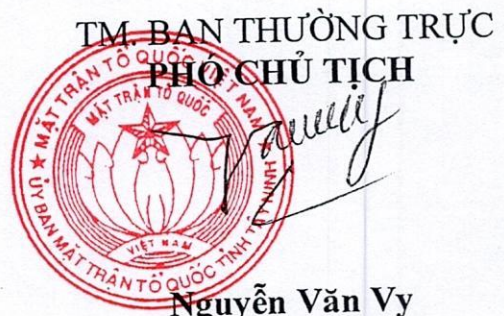 TM. BAN THƯỜNG TRỰC
PHÓ CHỦ TỊCH
MẶT TRẬN TỔ QUỐC VIỆT NAM
MẶT TRẬN TỔ QUỐC
VIỆT NAM
ỦY BAN MẶT TRẬN TỔ QUỐC TỈNH
Nguyễn Văn Vy